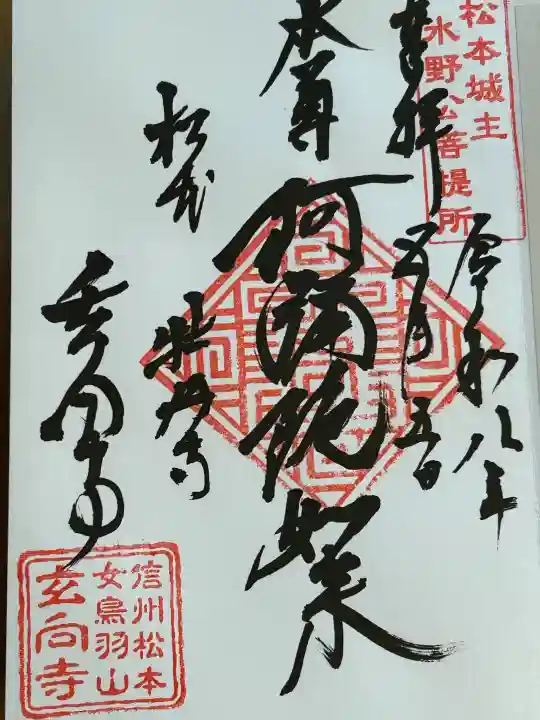 松本城主
水野公菩提所
奉拝
令和八年
五月五日
本尊
阿彌陀如来
松本
牡丹寺
玄向寺
信州松本
女鳥羽山
玄向寺